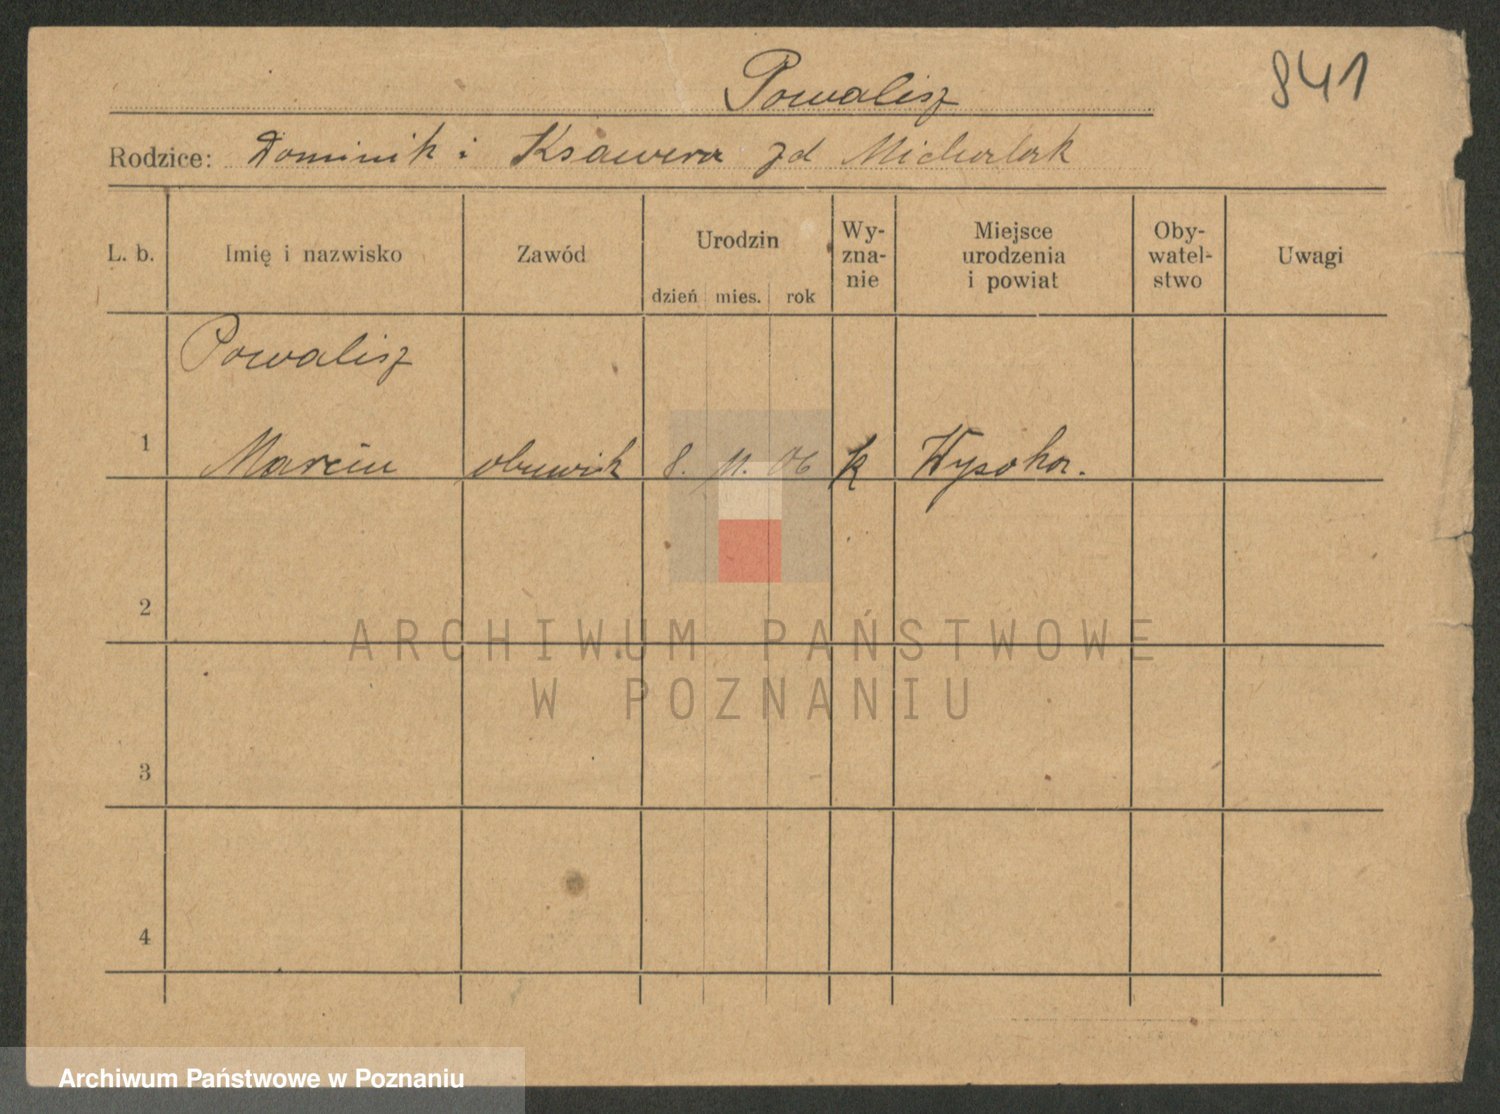 841
Powalisz
Rodzice: Dominik i Ksawera zd Michalak
L. b.
Imię i nazwisko
Zawód
Urodzin
dzień mies. rok
Wy-
zna-
nie
Miejsce
urodzenia
i powiat
Oby-
watel-
stwo
Uwagi
Powalisz
1 Marcin obuwik 8. 11. 06 k Wysoka.
2
3
4
ARCHIWUM PAŃSTWOWE
W POZNANIU
Archiwum Państwowe w Poznaniu